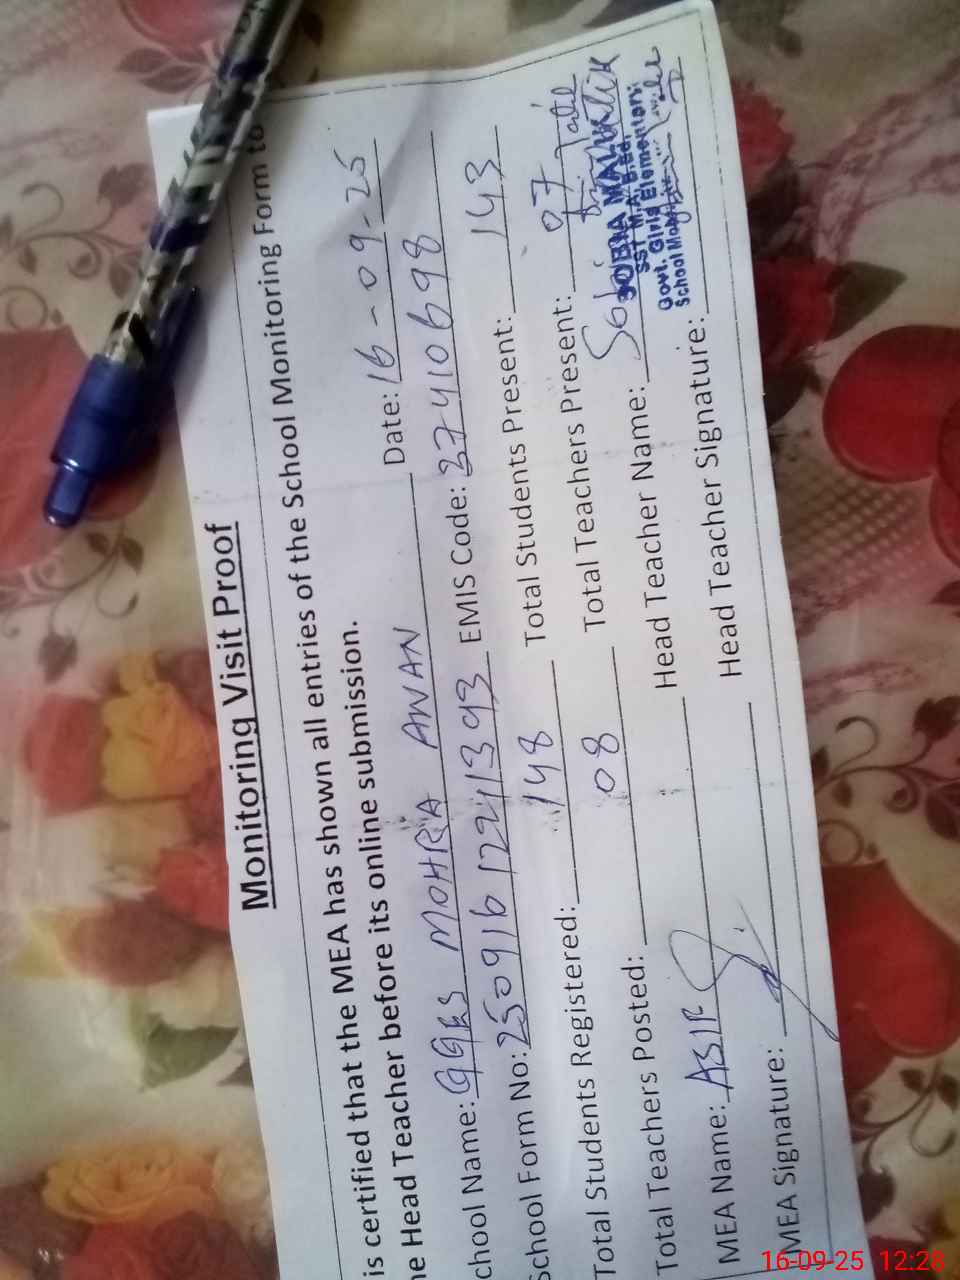 Monitoring Visit Proof
is certified that the MEA has shown all entries of the School Monitoring Form to
he Head Teacher before its online submission.
chool Name: GGES MOHRA AWAN Date: 16-09-25
School Form No: 25091612241393 EMIS Code: 37410698
Total Students Registered: 148 Total Students Present: 143
Total Teachers Posted: 08 Total Teachers Present: 07
MEA Name: ASIF Head Teacher Name:
MEA Signature: Head Teacher Signature:
SOBIA MALIK
SST M.A, B.ed,
Govt. Girls Elementary
School
16-09-25 12:28